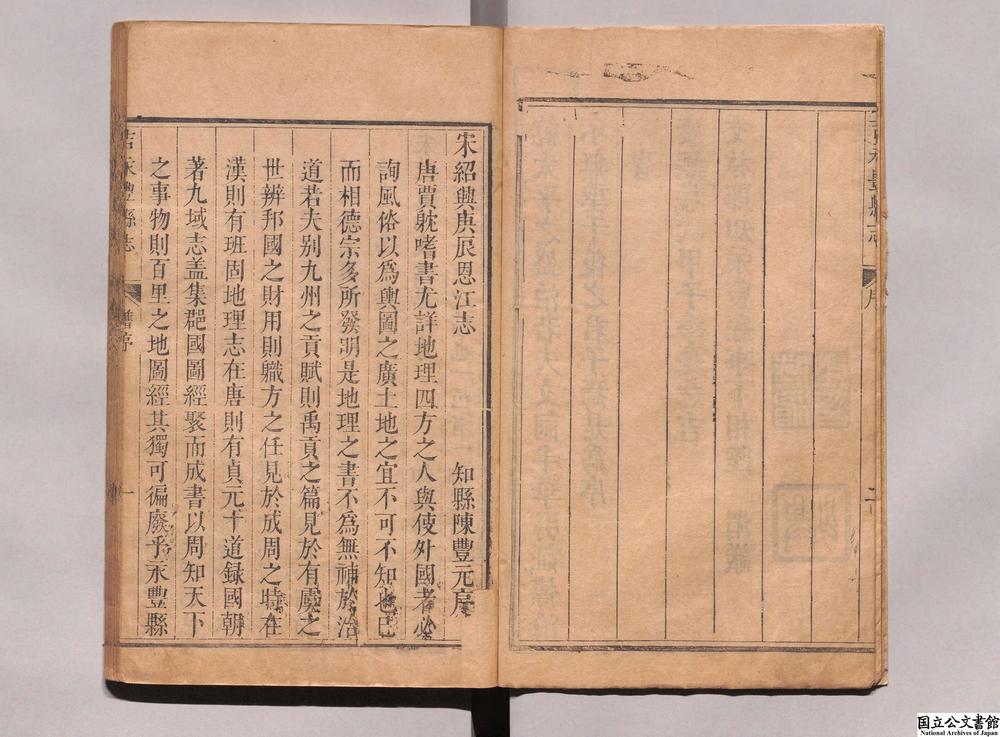 永豐縣志
序
二
宋紹興庚辰恩江志　知縣陳豐元序
唐賈躭嗜書尤詳地理四方之人與使外國者必
詢風俗以爲輿圖之廣土地之宜不可不知也已
而相德宗多所發明是地理之書不爲無補於治
道若夫别九州之貢賦則禹貢之篇見於有虞之
世辨邦國之財用則職方之任見於成周之時在
漢則有班固地理志在唐則有貞元十道録國朝
著九域志盖集郡國圖經聚而成書以周知天下
之事物則百里之地圖經其獨可徧廢乎永豐縣
吉永豐縣志
舊序
一
国立公文書館
National Archives of Japan